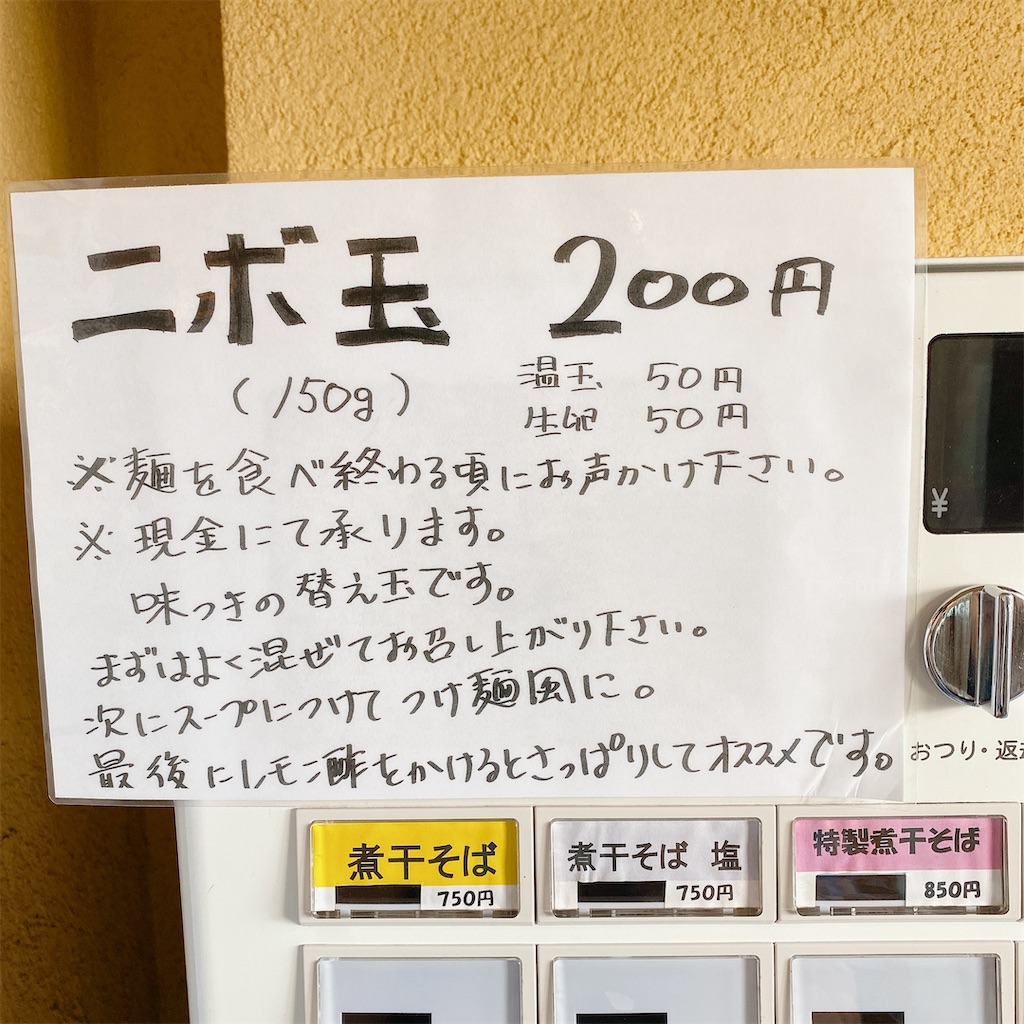 ニボ玉 200円
(150g)
温玉 50円
生卵 50円
※麺を食べ終わる頃にお声かけ下さい。
※現金にて承ります。
味つきの替え玉です。
まずはよく混ぜてお召し上がり下さい。
次にスープにつけてつけ麺風に。
最後にレモン酢をかけるとさっぱりしてオススメです。
¥
おつり・返
煮干そば
750円
煮干そば 塩
750円
特製煮干そば
850円